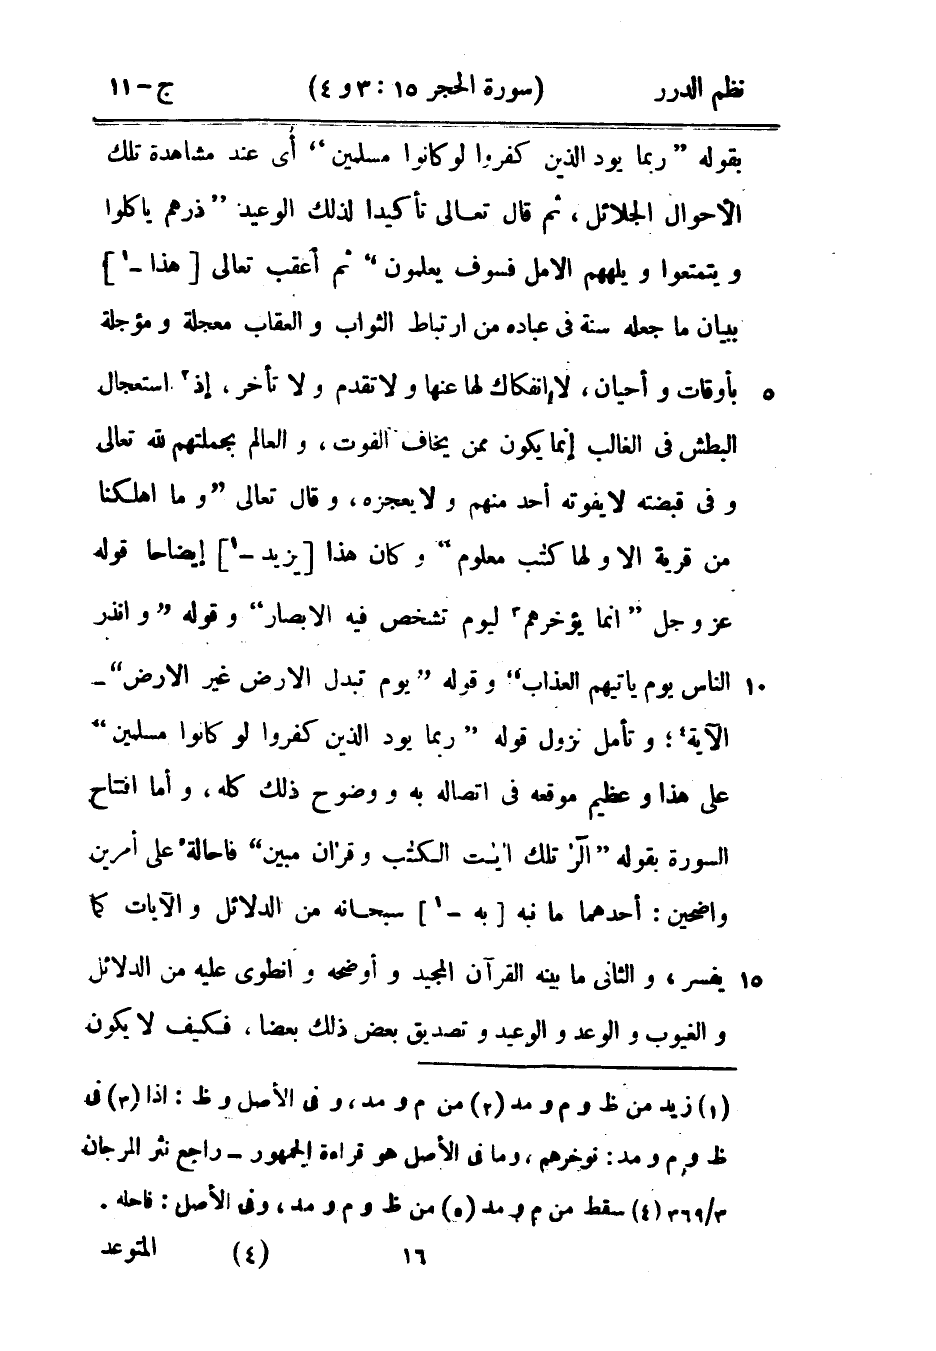 نظم الدرر (سورة الحجر ١٥ : ٣ و ٤) ج - ١١
بقوله ” ربما يود الذين كفروا لو كانوا مسلمين “ أى عند مشاهدة تلك
الأحوال الجلائل ، ثم قال تعالى تأكيدا لذلك الوعيد ” ذرهم ياكلوا
و يتمتعوا و يلههم الامل فسوف يعلمون “ ثم أعقب تعالى [ هذا - ١ ]
ببيان ما جعله سنة فى عباده من ارتباط الثواب و العقاب معجلة و مؤجلة
٥ بأوقات و أحيان ، لا انفكاك لها عنها و لا تقدم و لا تأخر ، إذ ٢ استعجال
البطش فى الغالب إنما يكون ممن يخاف الفوت ، و العالم بجملتهم لله تعالى
و فى قبضته لا يفوته أحد منهم و لا يعجزه ، و قال تعالى ” و ما اهلكنا
من قرية الا و لها كتٰب معلوم “ و كان هذا [ يزيد - ١ ] إيضاحا قوله
عز و جل ” انما يؤخرهم ٣ ليوم تشخص فيه الابصار “ و قوله ” و انذر
١٠ الناس يوم ياتيهم العذاب “ و قوله ” يوم تبدل الارض غير الارض “ -
الآية ٤ ؛ و تأمل نزول قوله ” ربما يود الذين كفروا لو كانوا مسلمين “
على هذا و عظيم موقعه فى اتصاله به و وضوح ذلك كله ، و أما افتتاح
السورة بقوله ” الٓرٰ تلك اٰيٰت الكتٰب و قراٰن مبين “ فاحالة ٥ على أمرين
واضحين : أحدهما ما نبه [ به - ١ ] سبحانه من الدلائل و الآيات كما
١٥ يفسر ، و الثانى ما بينه القرآن المجيد و أوضحه و انطوى عليه من الدلائل
و الغيوب و الوعد و الوعيد و تصديق بعض ذلك بعضا ، فكيف لا يكون
(١) زيد من ظ و م و مد (٢) من م و مد ، و فى الأصل و ظ : اذا (٣) فى
ظ و م و مد : نؤخرهم ، وما فى الأصل هو قراءة الجمهور - راجع نثر المرجان
٣/٣٦٩ (٤) سقط من م و مد (٥) من ظ و م و مد ، وفى الأصل : فاحله .
١٦ (٤) المتوعد